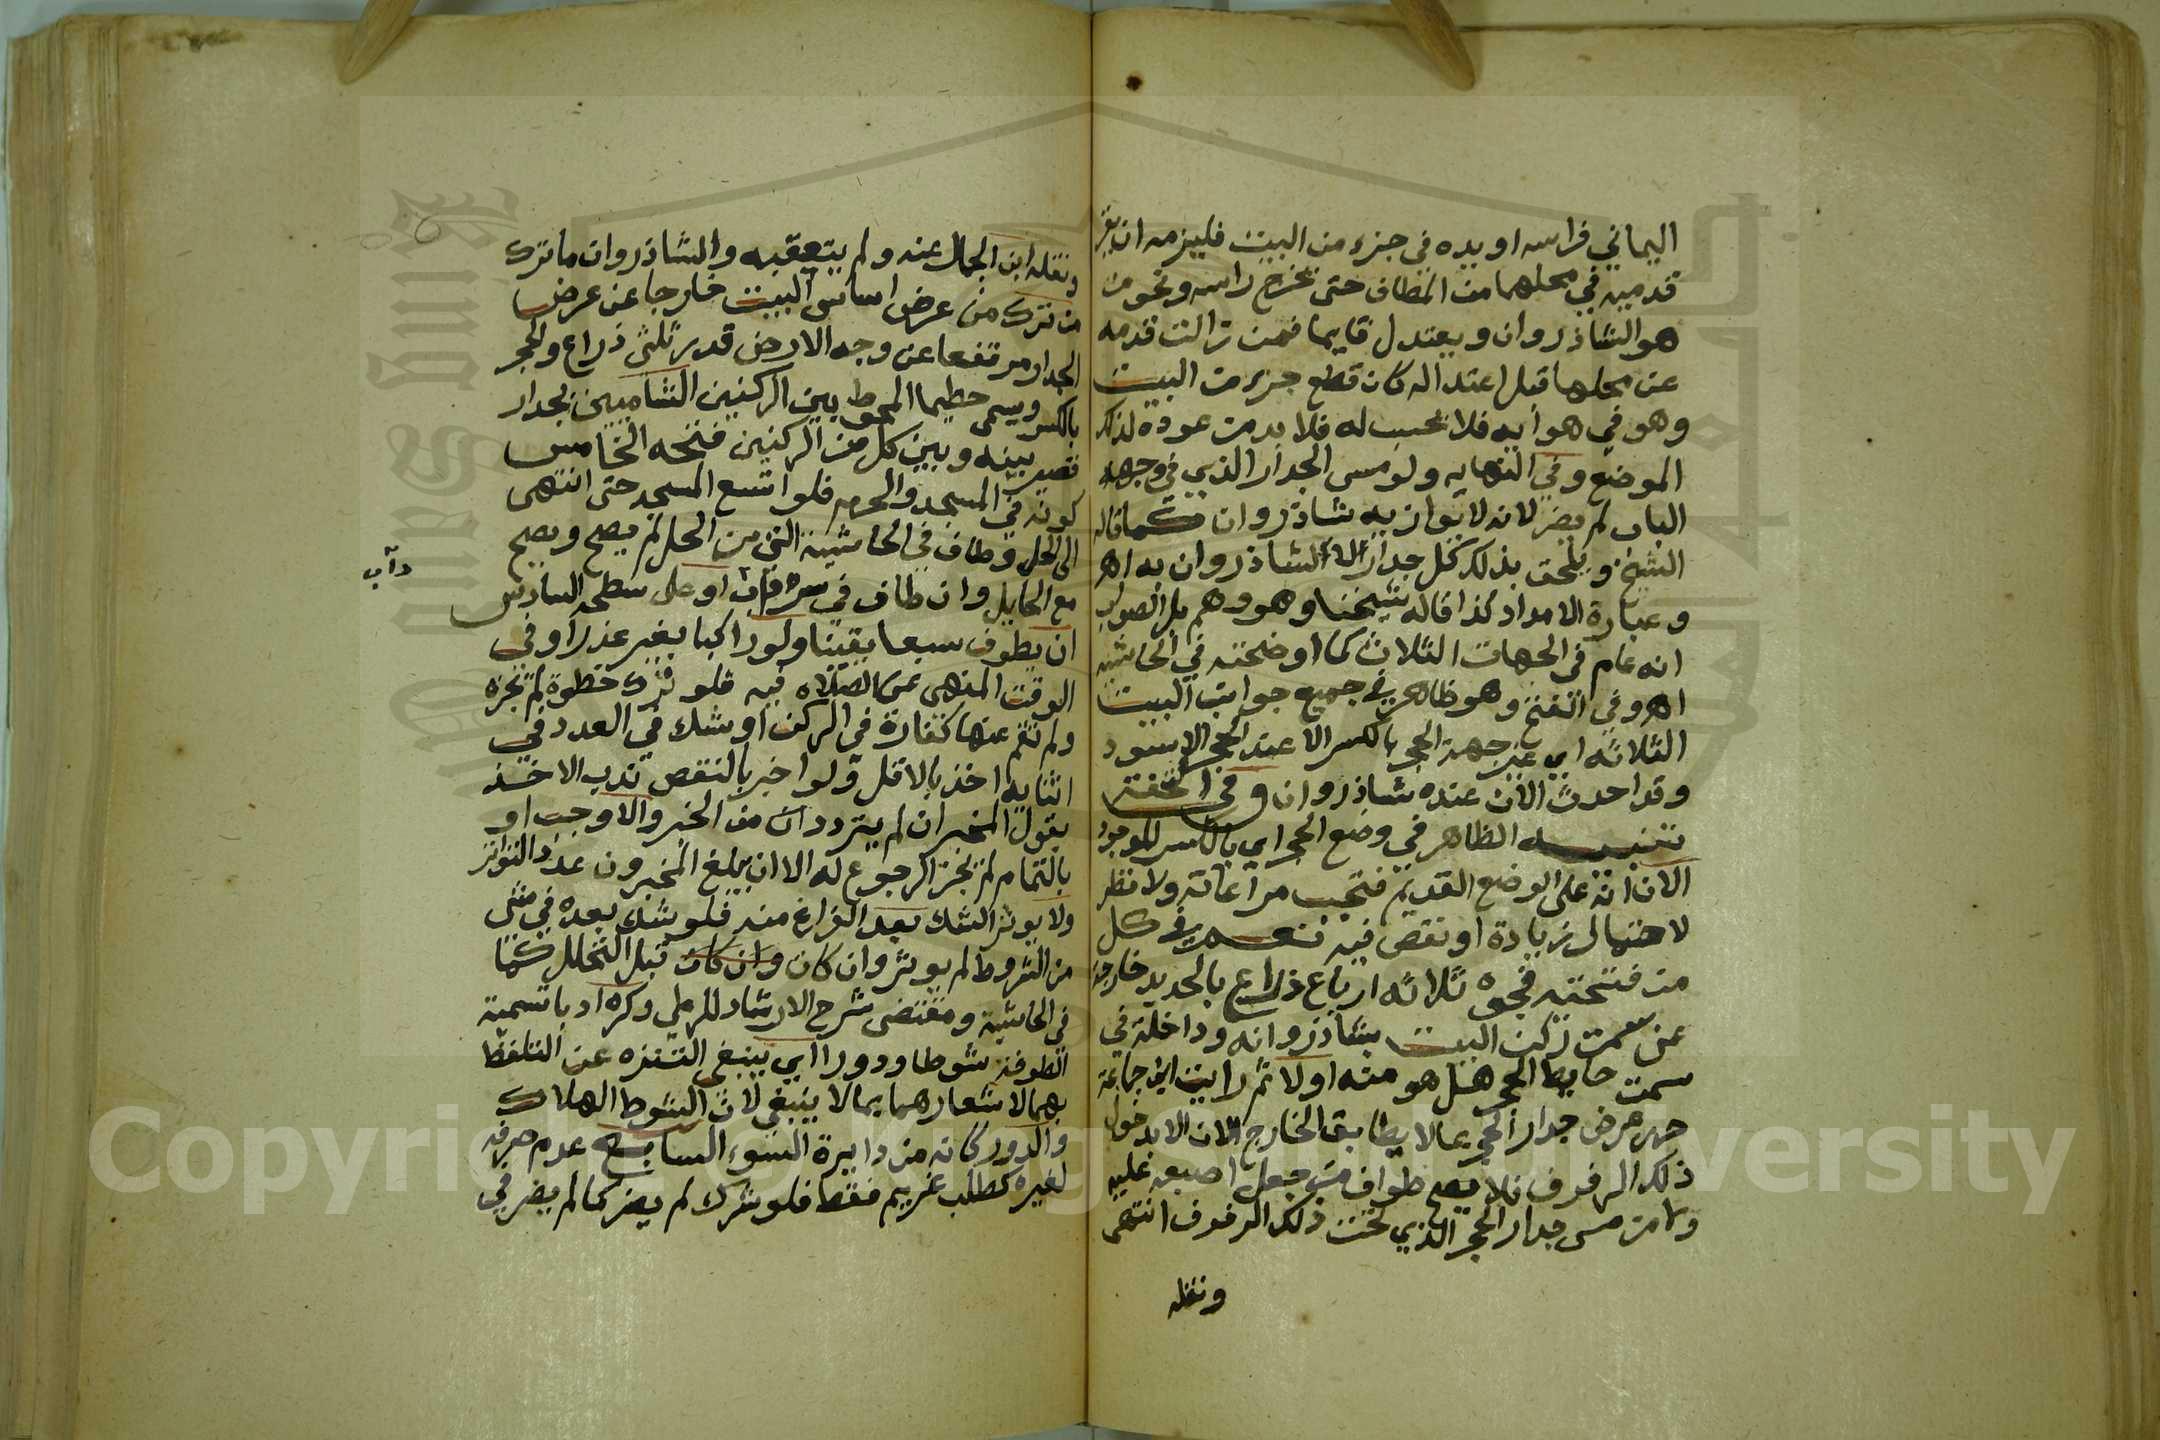 اليماني فراسه او يده في جزء من البيت فليزمه ان يقر
قدميه في محلهما من المطاف حتى تخرج راسه ونحو من
هو الشاذروان ويعتدل قايما فمن زالت قدمه
عن محلها قبل اعتداله كان قطع جزء من البيت
وهو في هوايه فلا يحسب له فلا بد من عوده لذلك
الموضع وفي النهايه ولو مس الجدار الذي في وجهه
الباب لم يضر لانه لا يوازيه شاذروان كما قاله
الشيخ ويلحق بذلك كل جدار لا شاذروان به اهـ
وعبارة الامداد كذا قاله شيخنا وهو وهم بل الصواب
انه عام في الجهات الثلاث كما اوضحته في الحاشيه
اهـ وفي الفتح وهو ظاهر في جميع جوانب البيت
الثلاثه اي غير جهة الحجر بالكسر الا عند الحجر الاسود
وقد احدث الان عنده شاذروان وفي التحفة
تنبيه الظاهر في وضع الحجر اي بالكسر الموجود
الان انه على الوضع القديم فتجب مراعاته ولا نظر
لاحتمال زيادة او نقص فيه نعم في كل
من فتحتيه فجوه ثلاثه ارباع ذراع بالحديد خارجة
عن سمت ركن البيت بشاذروانه وداخلة في
سمت حايط الحجر هل هو منه اولا ثم رايت ابن جماعة
حرر عرض جدار الحجر بما لا يطابق الخارج الان الا بدخول
ذلك الرفرف فلا يصح طواف من جعل اصبعه عليه
ولا من مس جدار الحجر الذي تحت ذلك الرفرف انتهى
ونقله
ونقله ابن الجمال عنه ولم يتعقبه والشاذروان ما ترك
من ترك من عرض اساس البيت خارجا عن عرض
الجدار مرتفعا عن وجه الارض قدر ثلثي ذراع والحجر
بالكسر ويسمى حطيما المحوط بين الركنين الشاميين بجدار
قصير بينه وبين كل من الركنين فتحه الخامس
كونه في المسجد والحرم فلو اتسع المسجد حتى انتهى
الى الحل وطاف في الحاشية التي من الحل لم يصح ويصح
مع الحايل وان طاف في او على سطحه السادس
ان يطوف سبعا يقينا ولو راكبا بغير عذر او في
الوقت المنهي عن الصلاه فيه فلو ترك خطوة لم تجزه
ولم تقم عنها كفارة في الركن او شك في العدد في
اثنايه اخذ بالاقل ولو اخبر بالنقص ندب الاخذ
بقول المخبر ان لم يتردد من الخبر والا وجب او
بالتمام لم يجز الرجوع له الا ان بلغ المخبرون عدد التواتر
ولا يوثر الشك بعد الفراغ منه فلو شك بعده في شي
من الشروط لم يوثر وان كان وان كان قبل التحلل كما
في الحاشية ومقتضى شرح الارشاد للرملي وكره ادبا تسمية
الطوفة شوطا ودورا اي ينبغي التنزه عن التلفظ
بهما لاشعارهما بما لا ينبغي لان الشوط الهلاك
والدور كانه من دايرة السوء السابع عدم صرفه
لغيره كطلب غريم فقط فلو شرك لم يضر كما لم يضر في
Copyright © King Saud University